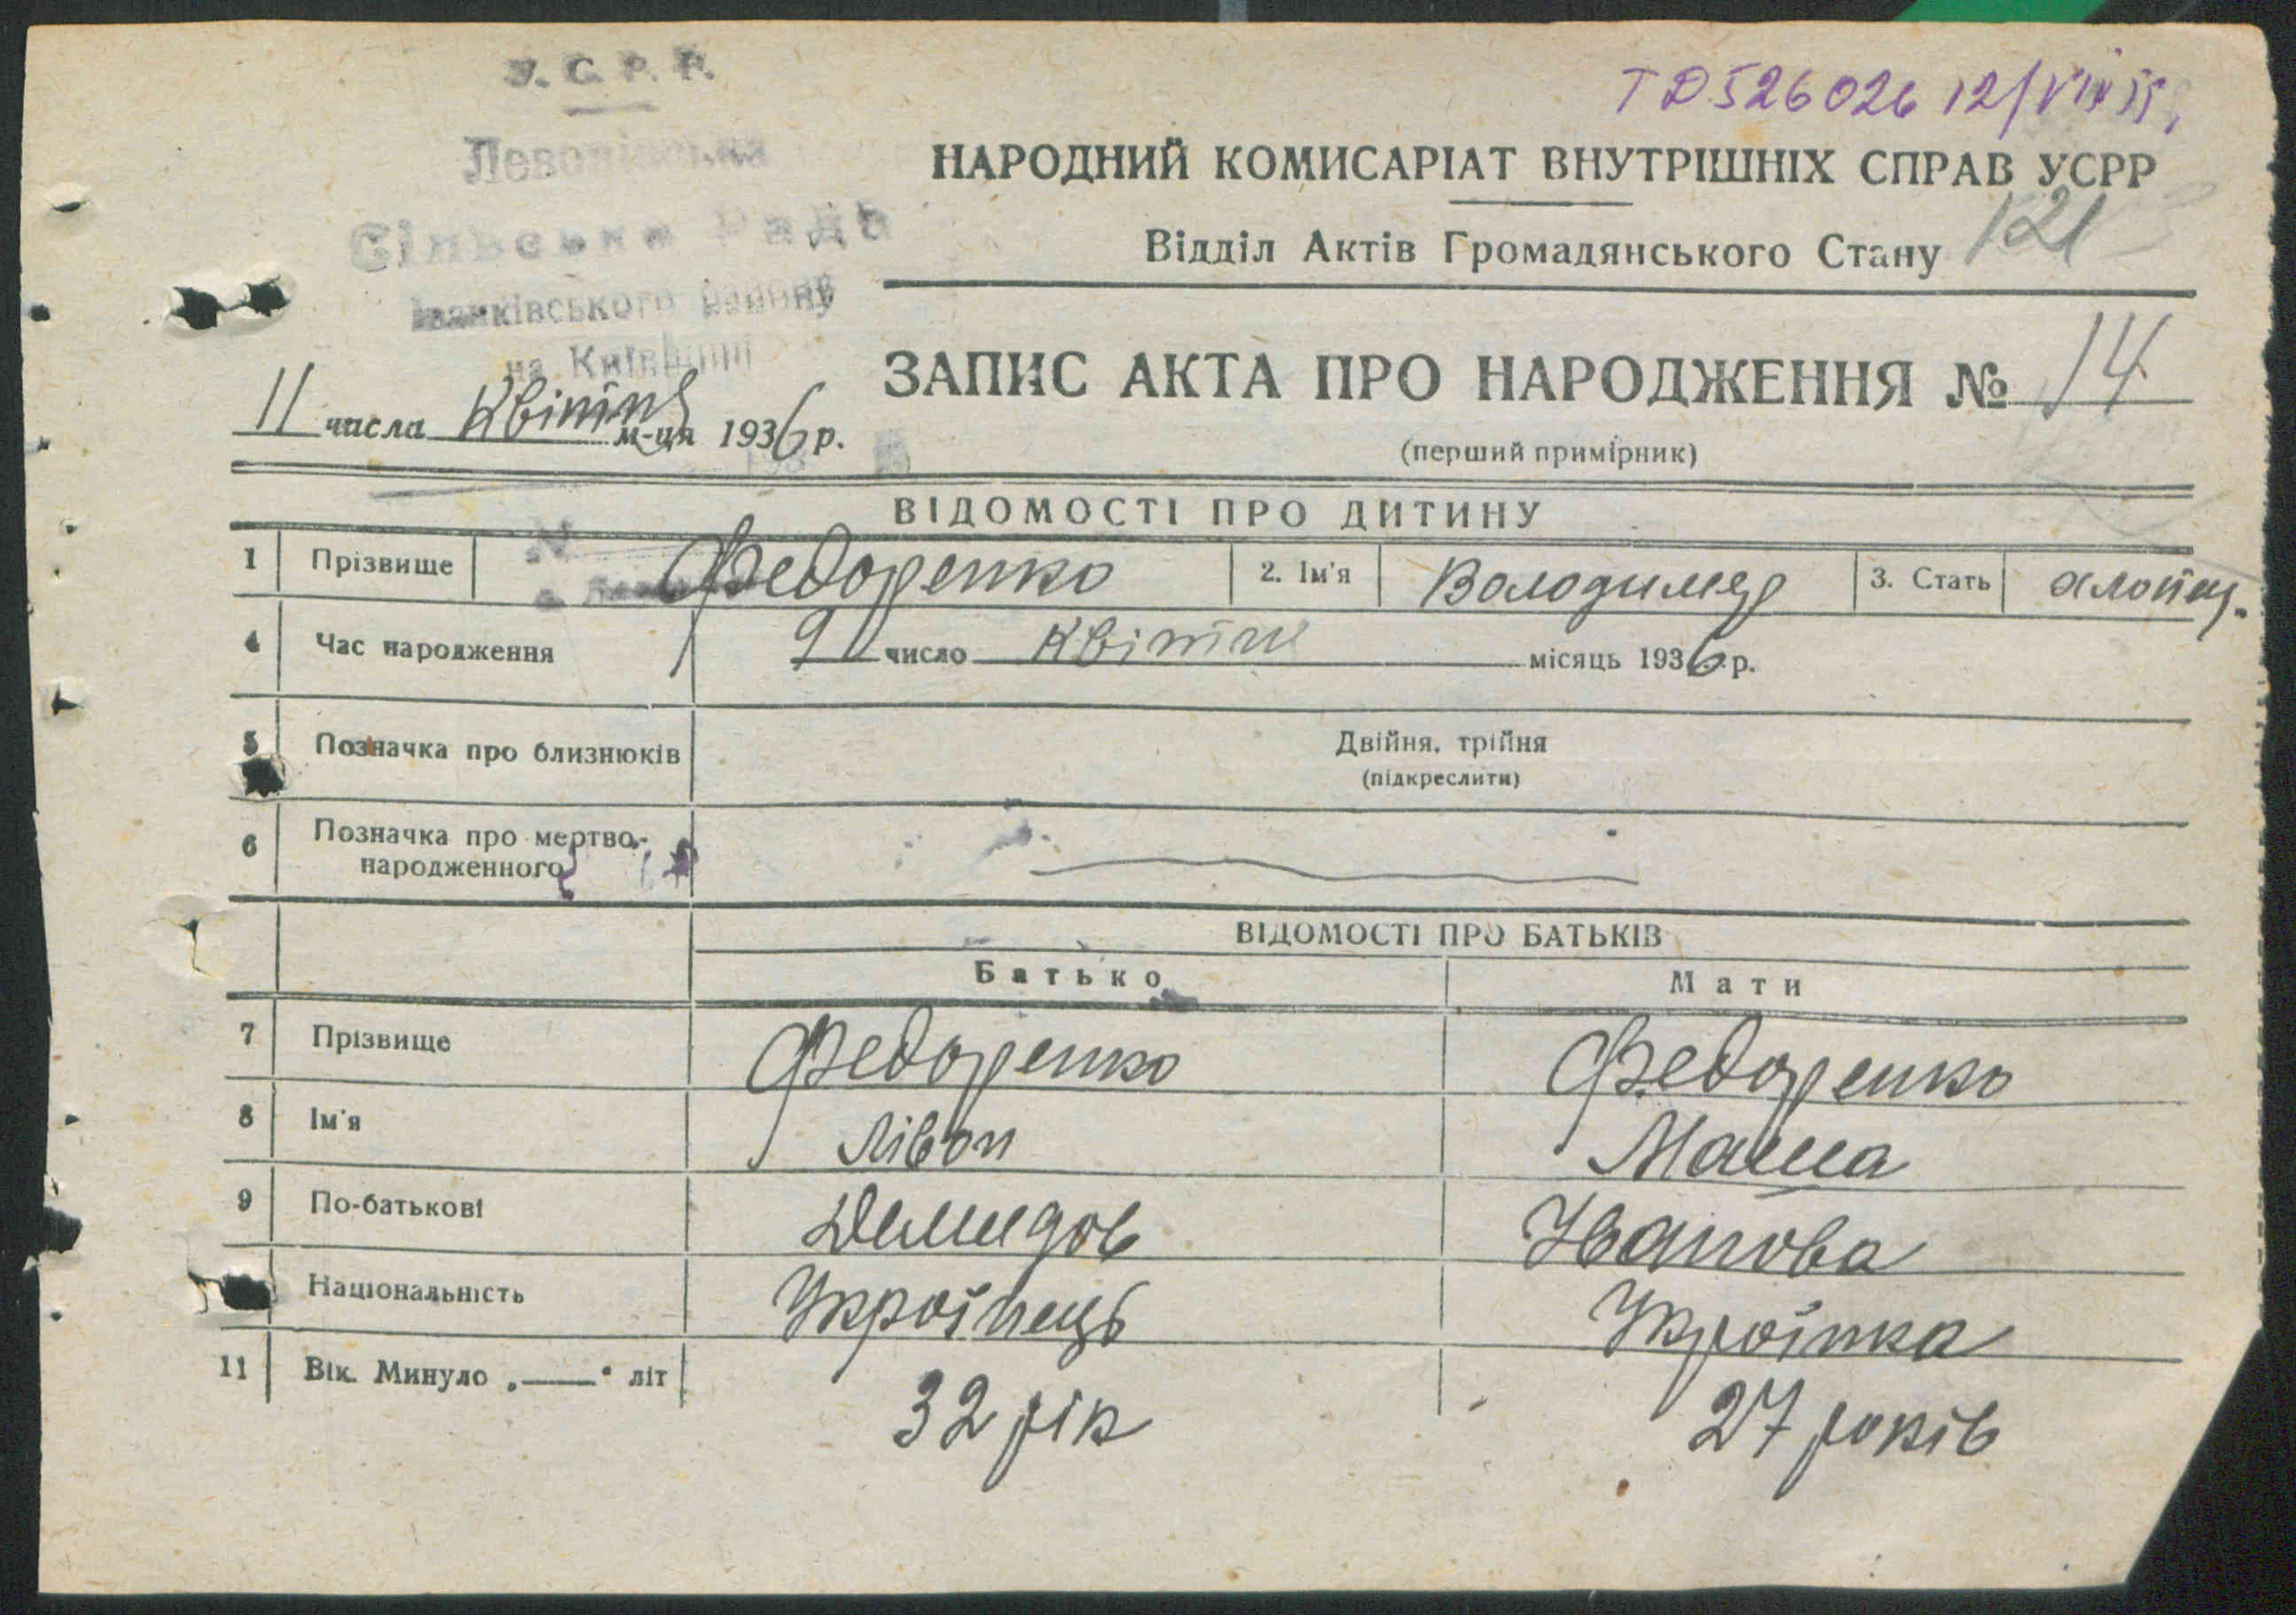 У. С. Р. Р.
ТД 526026 12/VIII
НАРОДНИЙ КОМИСАРІАТ ВНУТРІШНІХ СПРАВ УСРР
Сільська Рада
Відділ Актів Громадянського Стану 121
Іванківського району
на Київщині
ЗАПИС АКТА ПРО НАРОДЖЕННЯ № 14
11 числа Квітня м-ця 1936 р.
(перший примірник)
ВІДОМОСТІ ПРО ДИТИНУ
1 Прізвище Федоренко 2. Ім'я Володимер 3. Стать хлопец.
4 Час народження 9 число Квітня місяць 1936 р.
5 Позначка про близнюків Двійня, трійня
(підкреслити)
6 Позначка про мертво-
народженного
ВІДОМОСТІ ПРО БАТЬКІВ
Батько Мати
7 Прізвище Федоренко Федоренко
8 Ім'я Лівон Маша
9 По-батькові Демидов Іванова
Національність Україінець Українка
11 Вік. Минуло „——“ літ 32 рік 27 років